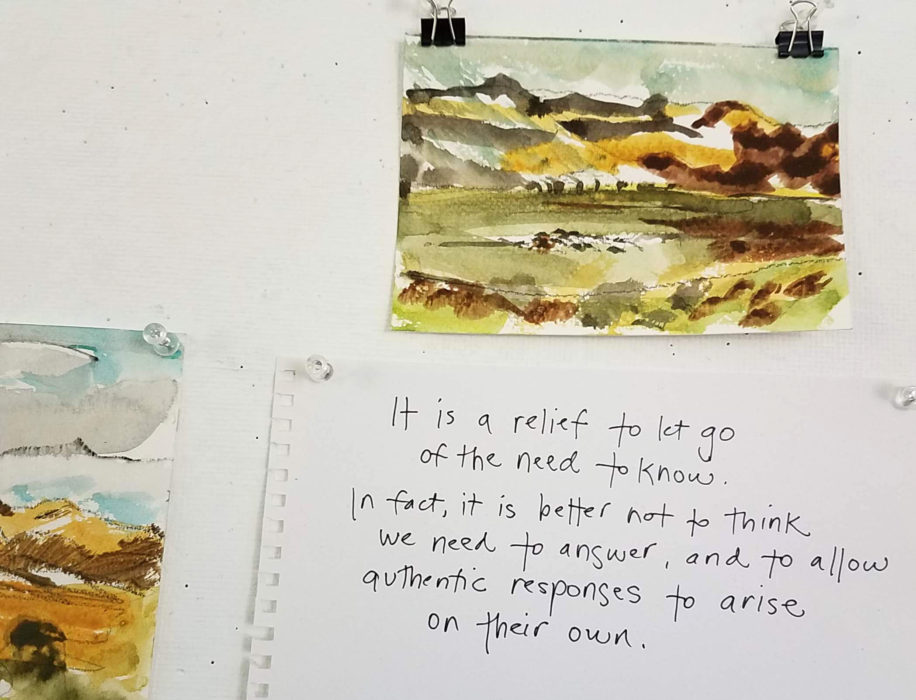 It is a relief to let go
of the need to know.
In fact, it is better not to think
we need to answer, and to allow
authentic responses to arise
on their own.